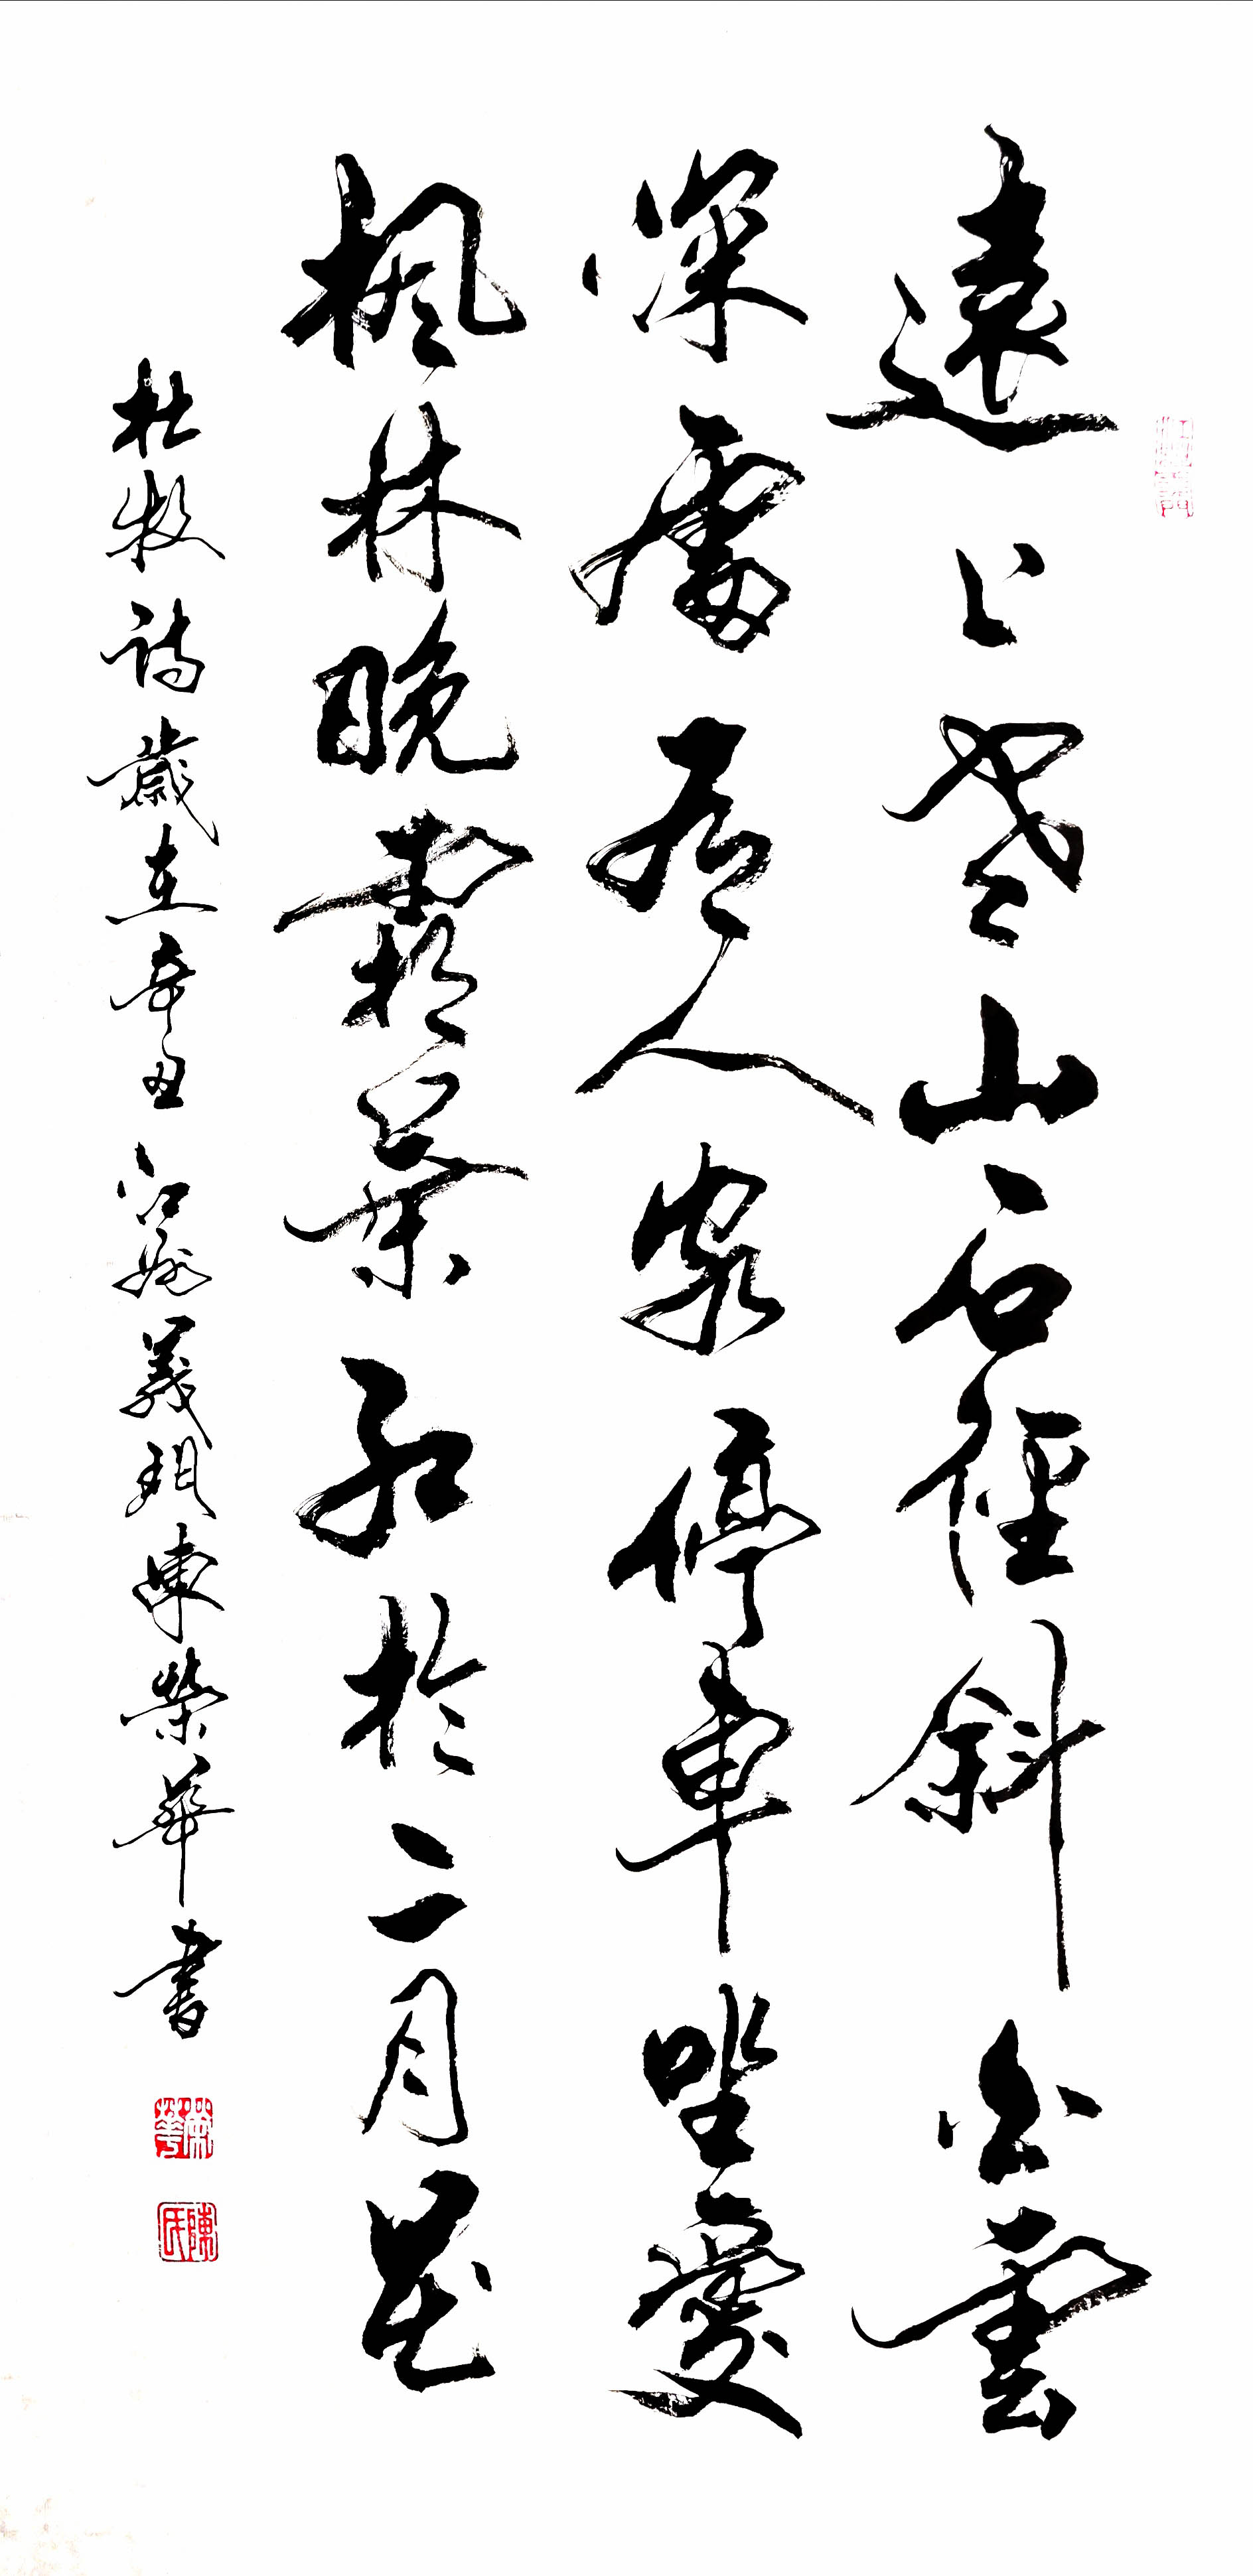 遠上寒山石徑斜白雲
深處有人家停車坐愛
楓林晚霜葉紅於二月花
杜牧詩歲在辛丑江州義門陳榮華書
榮華
陳氏